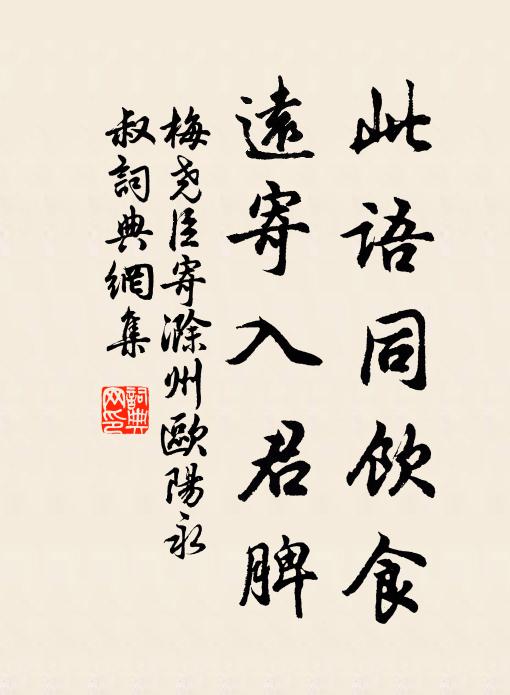 此语同饮食
遠寄入君脾
梅尧臣寄滁州歐陽永
叔詞典網集
詞典
网印